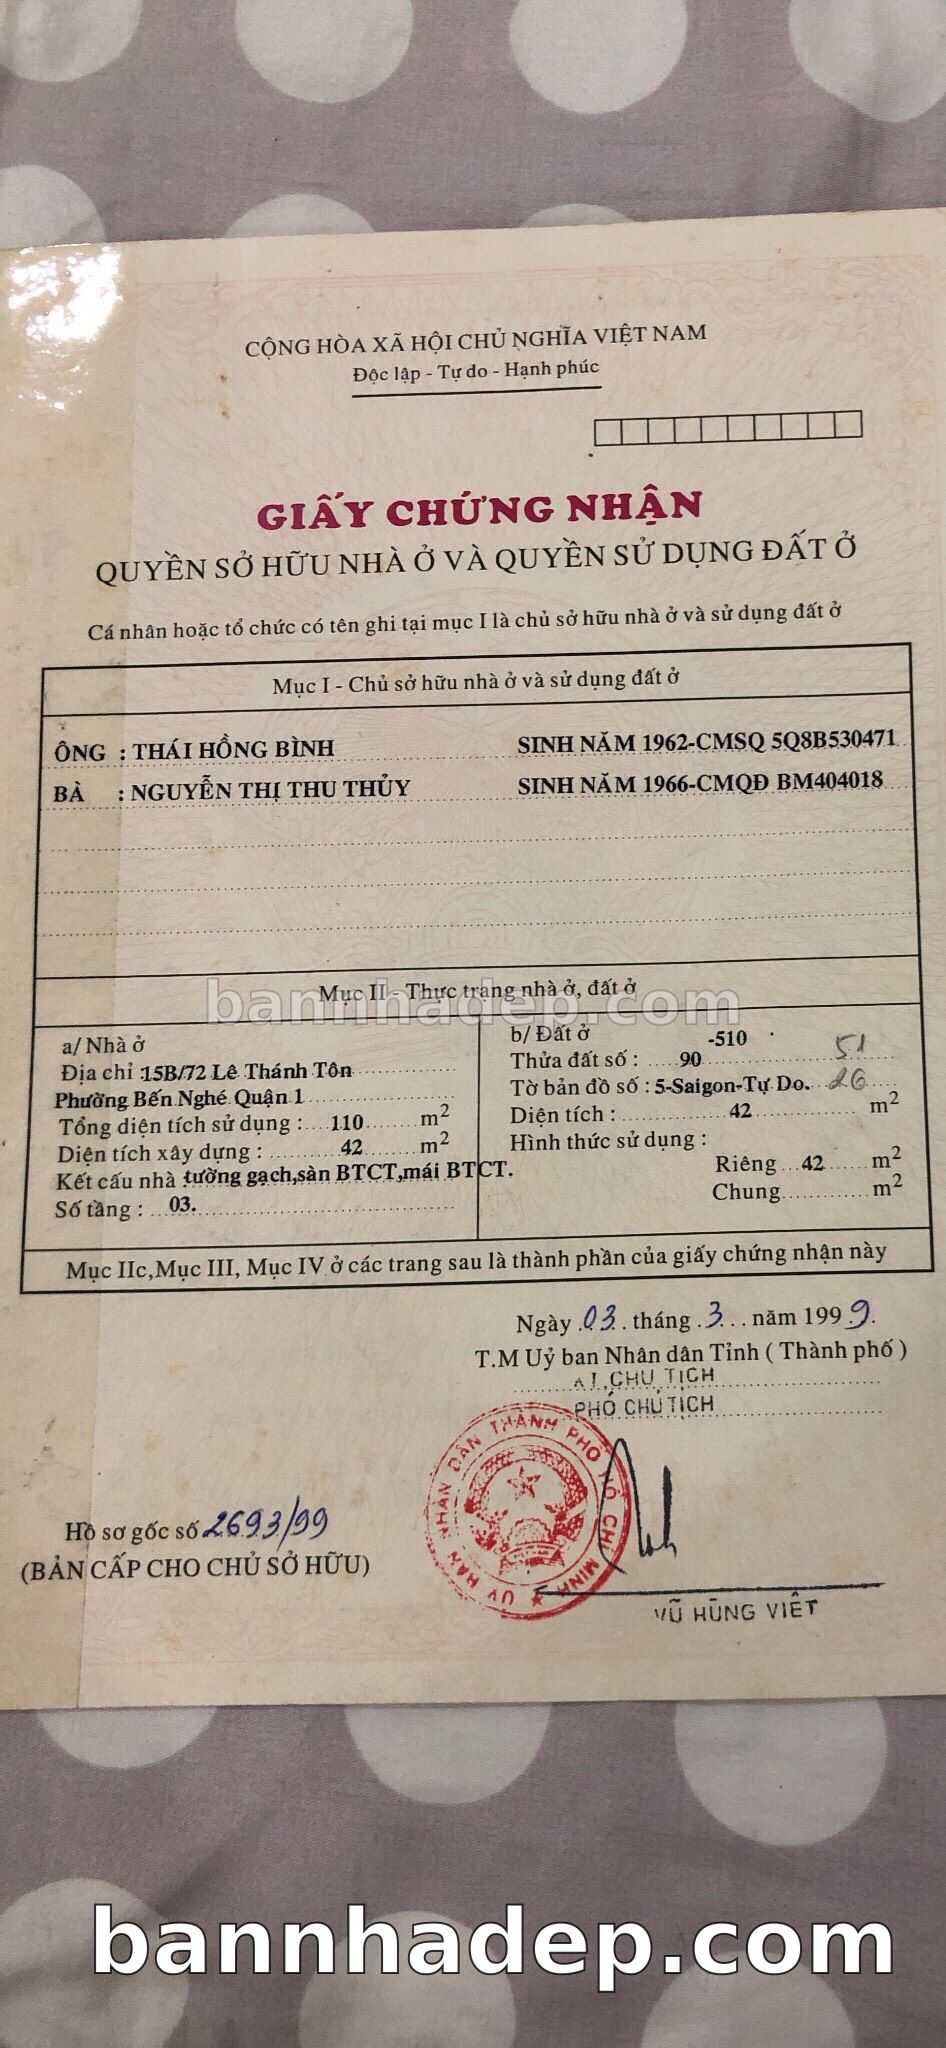 CỘNG HÒA XÃ HỘI CHỦ NGHĨA VIỆT NAM
Độc lập - Tự do - Hạnh phúc
GIẤY CHỨNG NHẬN
QUYỀN SỞ HỮU NHÀ Ở VÀ QUYỀN SỬ DỤNG ĐẤT Ở
Cá nhân hoặc tổ chức có tên ghi tại mục I là chủ sở hữu nhà ở và sử dụng đất ở
Mục I - Chủ sở hữu nhà ở và sử dụng đất ở
ÔNG : THÁI HỒNG BÌNH SINH NĂM 1962-CMSQ 5Q8B530471
BÀ : NGUYỄN THỊ THU THỦY SINH NĂM 1966-CMQĐ BM404018
Mục II - Thực trạng nhà ở, đất ở
bannhadep.com
a/ Nhà ở
Địa chỉ :15B/72 Lê Thánh Tôn
Phường Bến Nghé Quận 1
Tổng diện tích sử dụng : 110 m2
Diện tích xây dựng : 42 m2
Kết cấu nhà tường gạch,sàn BTCT,mái BTCT.
Số tầng : 03.
b/ Đất ở -510
Thửa đất số : 90 51
Tờ bản đồ số : 5-Saigon-Tự Do. 26
Diện tích : 42 m2
Hình thức sử dụng :
Riêng 42 m2
Chung m2
Mục IIc,Mục III, Mục IV ở các trang sau là thành phần của giấy chứng nhận này
Ngày 03 tháng 3 năm 1999.
T.M Uỷ ban Nhân dân Tỉnh ( Thành phố )
KT.CHỦ TỊCH
PHÓ CHỦ TỊCH
ỦY BAN NHÂN DÂN THÀNH PHỐ HỒ CHÍ MINH
Hồ sơ gốc số 2693/99
(BẢN CẤP CHO CHỦ SỞ HỮU)
VŨ HÙNG VIỆT
bannhadep.com